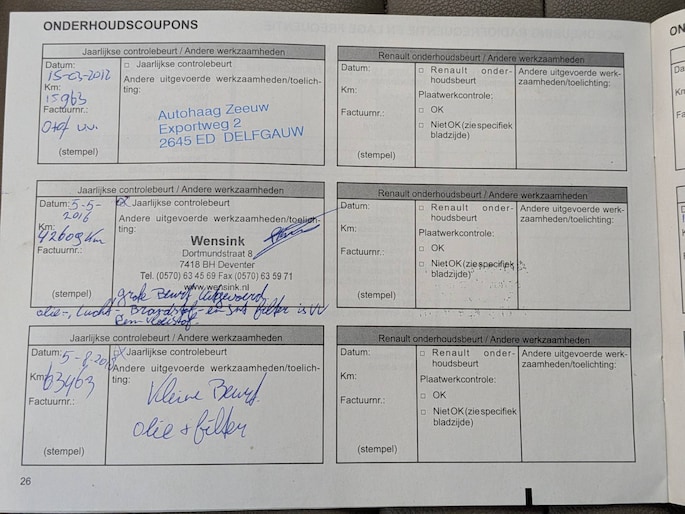 ONDERHOUDSCOUPONS
Jaarlijkse controlebeurt / Andere werkzaamheden
Datum:
15-03-2012
Km:
15963
Factuurnr.:
(stempel)
□ Jaarlijkse controlebeurt
Andere uitgevoerde werkzaamheden/toelich-
ting:
Autohaag Zeeuw
Exportweg 2
2645 ED DELFGAUW
Renault onderhoudsbeurt / Andere werkzaamheden
Datum:
Km:
Factuurnr.:
(stempel)
□ Renault onder-
houdsbeurt
Plaatwerkcontrole:
□ OK
□ Niet OK (zie specifiek
bladzijde)
Andere uitgevoerde werk-
zaamheden/toelichting:
Jaarlijkse controlebeurt / Andere werkzaamheden
Datum: 5-5-
2016
Km:
42609 Km
Factuurnr.:
(stempel)
Jaarlijkse controlebeurt
Andere uitgevoerde werkzaamheden/toelich-
ting:
Wensink
Dortmundstraat 8
7418 BH Deventer
Tel. (0570) 63 45 69 Fax (0570) 63 59 71
www.wensink.nl
grote Beurt uitgevoerd
olie-, Lucht-, Brandstof- en filter is VV
Remvloeistof.
Renault onderhoudsbeurt / Andere werkzaamheden
Datum:
Km:
Factuurnr.:
(stempel)
□ Renault onder-
houdsbeurt
Plaatwerkcontrole:
□ OK
□ Niet OK (zie specifiek
bladzijde)
Andere uitgevoerde werk-
zaamheden/toelichting:
Jaarlijkse controlebeurt / Andere werkzaamheden
Datum:
Km:
63463
Factuurnr.:
(stempel)
Jaarlijkse controlebeurt
Andere uitgevoerde werkzaamheden/toelich-
ting:
Kleine Beurt
olie + filter
Renault onderhoudsbeurt / Andere werkzaamheden
Datum:
Km:
Factuurnr.:
(stempel)
□ Renault onder-
houdsbeurt
Plaatwerkcontrole:
□ OK
□ Niet OK (zie specifiek
bladzijde)
Andere uitgevoerde werk-
zaamheden/toelichting:
26
ON